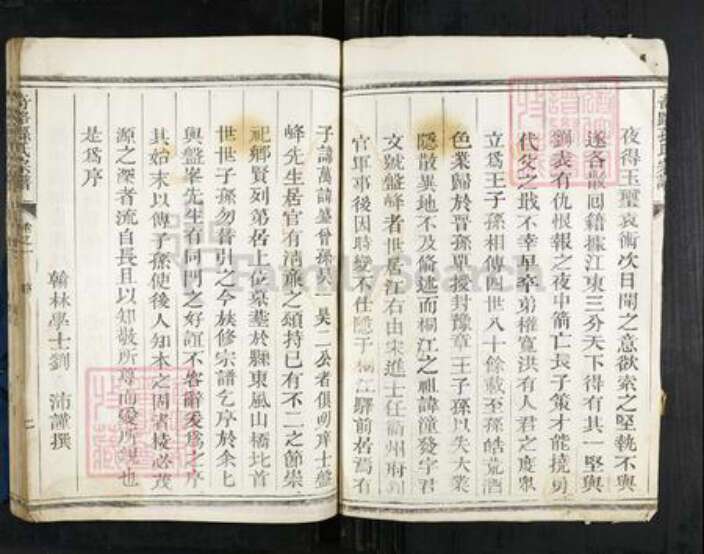 夜得玉璽哀術次日聞之意欲索之堅執不與
遂各散回籍據江東三分天下得有其一堅與
劉表有仇恨報之夜中箭亡長子策才能撓勇
代父之戢不幸早卒弟權寬洪有人君之度眾
立爲王子孫相傳四世八十餘載至孫皓荒酒
色業歸於晉孫單授封豫章王子孫以失大業
隱散異地不及備述而桐江之祖諱潼發字君
文號盤峰者世居江右由宋進士任衢州府判
官軍事後因時變不仕隱于桐江驛前居焉有
子諱萬諱盛曾孫吳一吳二公者俱明庠士盤
峰先生居官有清廉之頌持己有不二之節崇
祀鄉賢列第居上位泉墓於縣東風山橋北首
世世子孫勿替引之今族修宗譜乞序於余上
與盤峯先生有同門之好誼不容辭爰爲之序
其始末以傳子孫使後人知本之固者枝必茂
源之深者流自長且以知敬所尊而愛所親也
是爲序
翰林學士劉 沛謹撰
孫氏宗譜
卷之一 序
二
FamilySearch